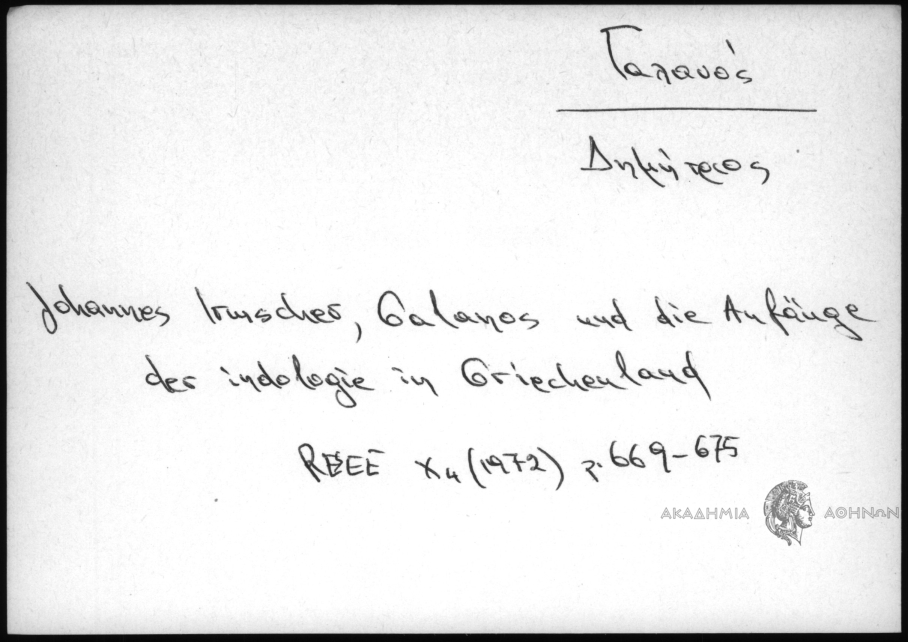 Γαλανός
Δημήτριος
Johannes Irmscher, Galanos und die Anfänge
der indologie in Griechenland
REEE X4 (1972) p. 669-675
ΑΚΑΔΗΜΙΑ ΑΘΗΝΩΝ